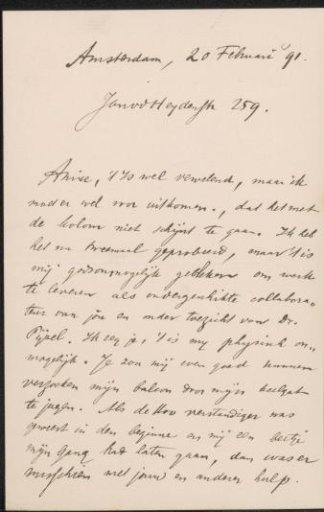 Amsterdam, 20 Februari '91.
Jan v d Heydenstr 259.
Amice, 't Is wel vervelend, maar ik
moet er wel voor uitkomen, dat het met
de kolom niet schijnt te gaan. Ik heb
het nu tweemaal geprobeerd, maar 't is
mij godsonmogelijk gebleken om werk
te leveren als ondergeschikte collabora-
teur van jou en onder toezicht van Dr.
Pijzel. Ik zeg je, 't is my physiek on-
mogelijk. Je zou mij even goed kunnen
verzoeken mijn balein door mijn
te jagen. Als de Koo verstandiger was
geweest in den beginne en mij een beetje
mijn gang had laten gaan, dan was er
misschien met jouw en anderer hulp.